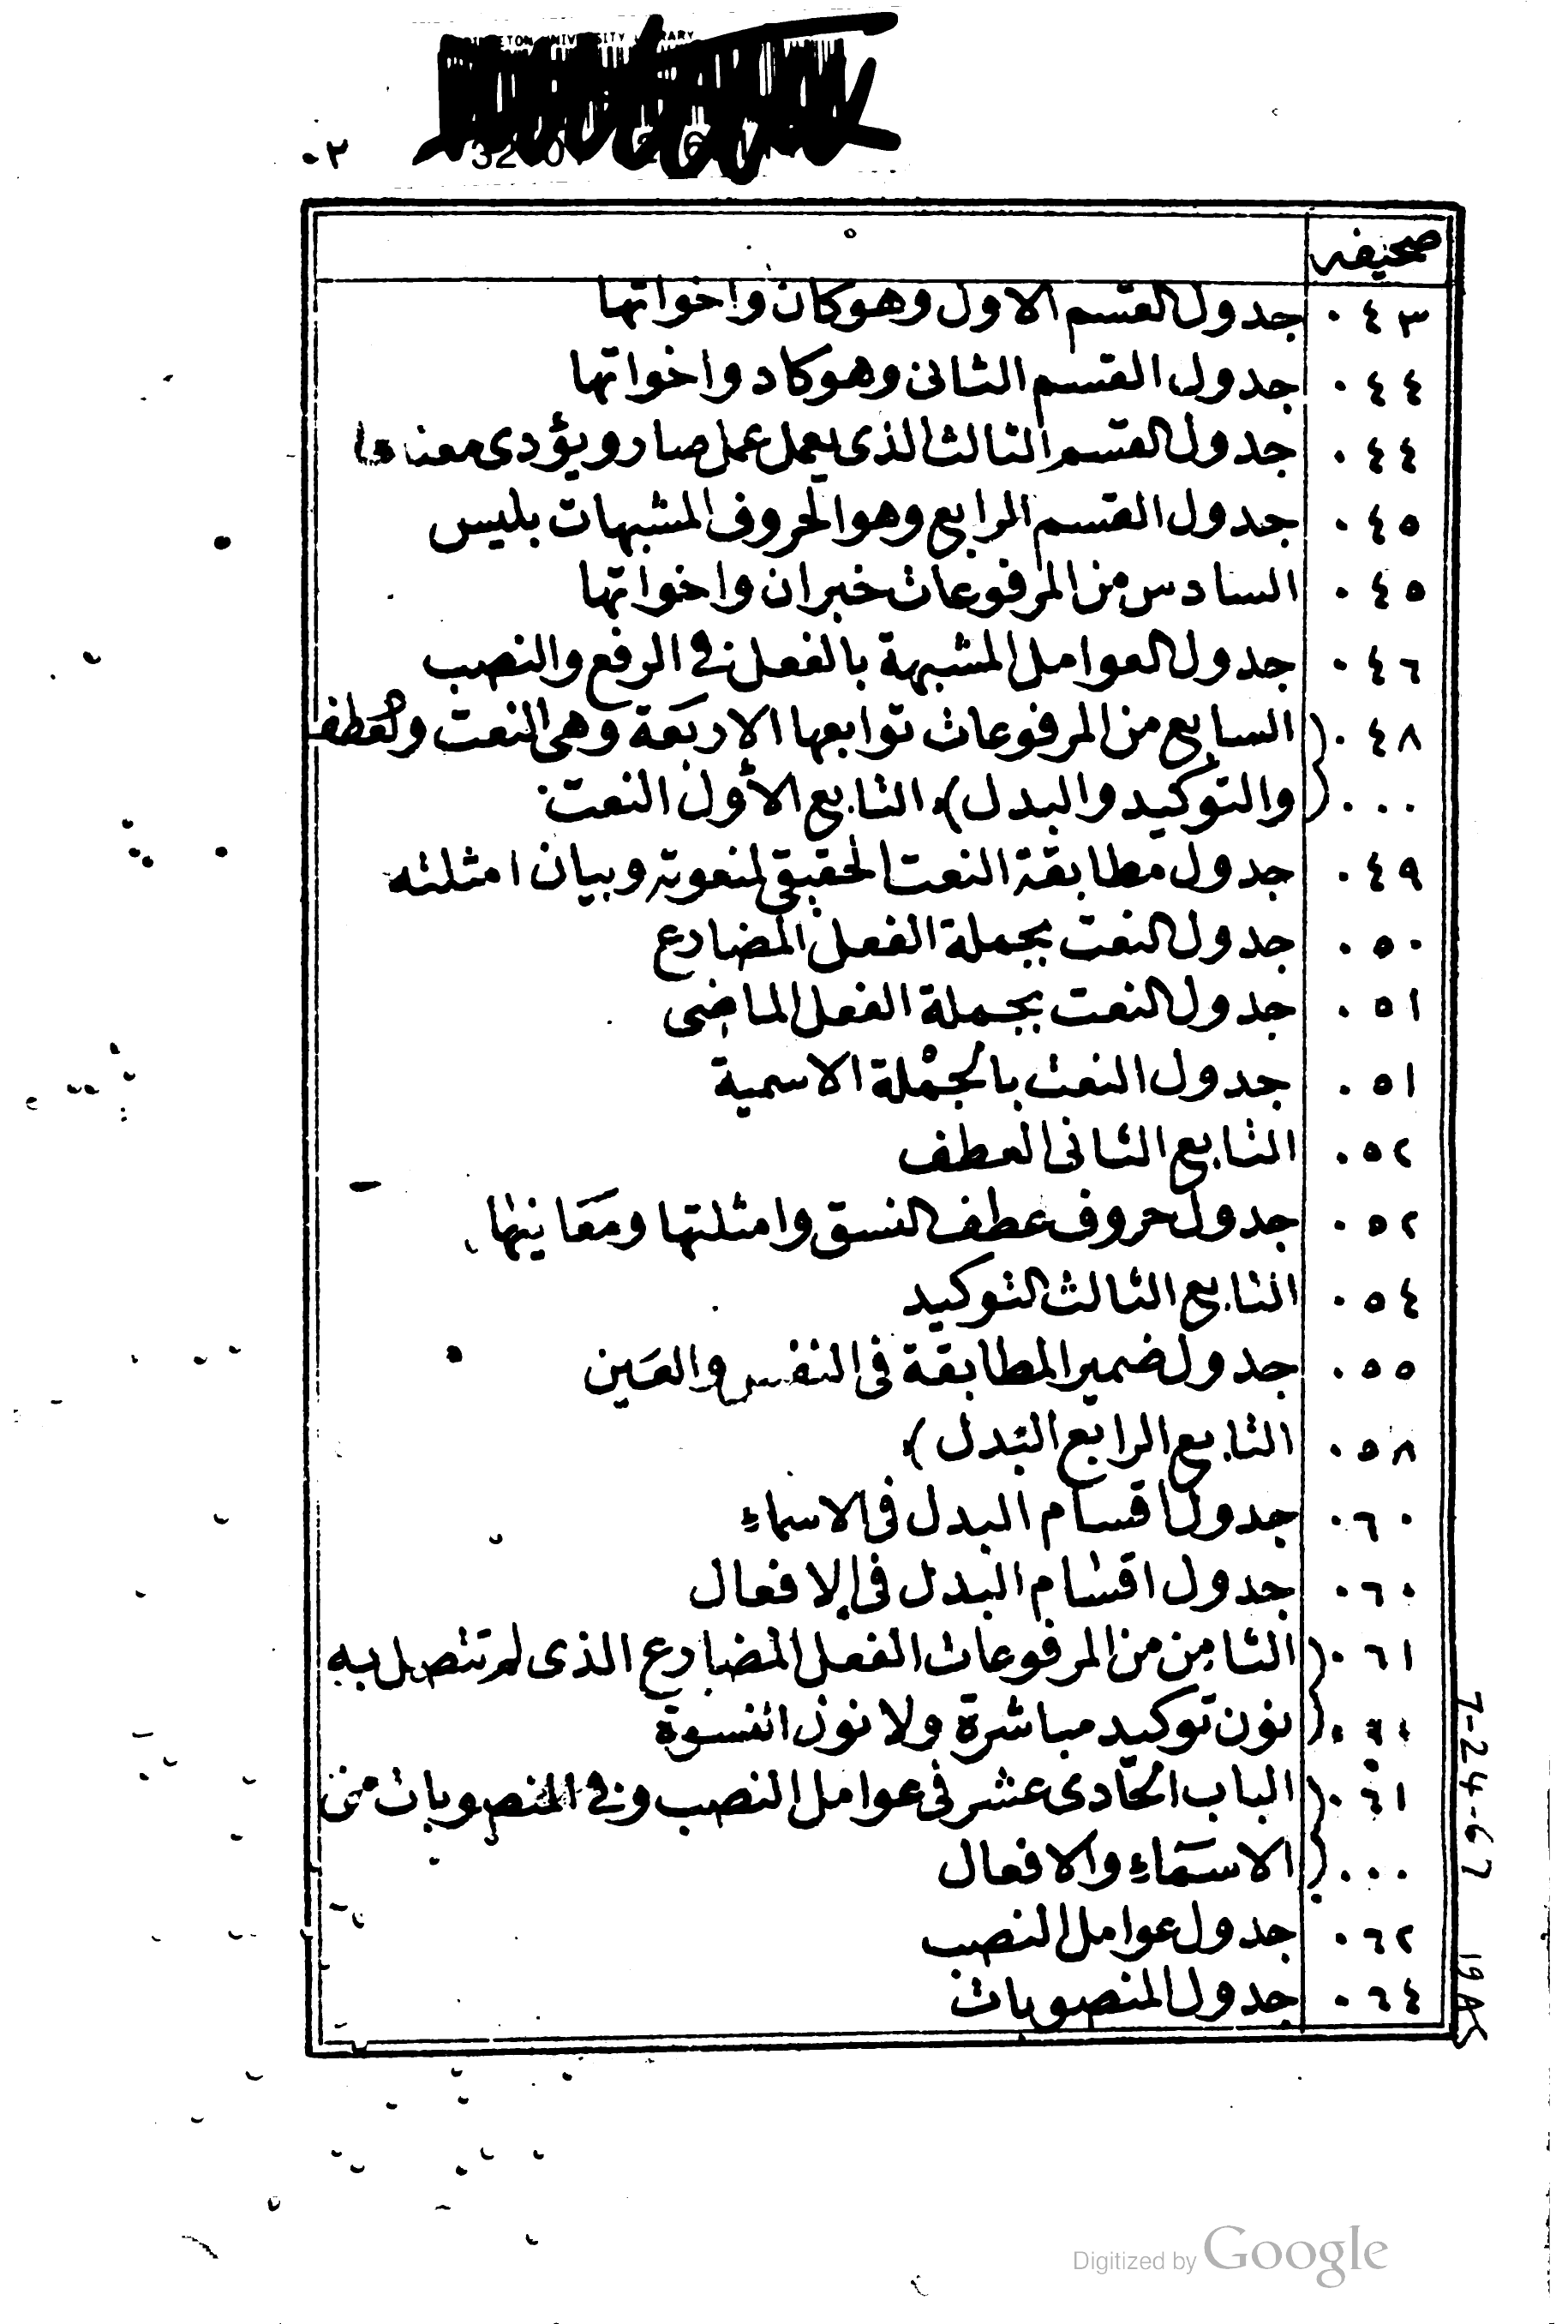 ٠٣
صحيفه
٠٤٣ جدول القسم الاول وهو كان واخواتها
٠٤٤ جدول القسم الثانى وهو كاد واخواتها
٠٤٤ جدول القسم الثالث الذى يعمل عمل صار ويؤدى معناها
٠٤٥ جدول القسم الرابع وهو الحروف المشبهات بليس
٠٤٥ السادس من المرفوعات خبر ان واخواتها
٠٤٦ جدول العوامل المشبهة بالفعل فى الرفع والنصب
٠٤٨ السابع من المرفوعات توابعها الاربعة وهى النعت والعطف
... والتوكيد والبدل) التابع الأول النعت
٠٤٩ جدول مطابقة النعت الحقيقى لمنعوته وبيان امثلته
٠٥٠ جدول النعت بجملة الفعل المضارع
٠٥١ جدول النعت بجملة الفعل الماضى
٠٥١ جدول النعت بالجمْلة الاسمية
٠٥٢ التابع الثانى العطف
٠٥٢ جدول حروف عطف النسق وامثلتها ومَعَانيها
٠٥٤ التابع الثالث التوكيد
٠٥٥ جدول ضمير المطابقة فى النفس والعَين
٠٥٨ التابع الرابع البَدل)
٠٦٠ جدول اقسام البدل فى الاسماءِ
٠٦٠ جدول اقسام البدل فى الافعال
٠٦١ الثامن من المرفوعات الفعل المضارع الذى لم تتصل به
نون توكيد مباشرة ولا نون النسوة
٠٦١ الباب الحَادى عشر فى عوامل النصب وفى المنصوبات من
... الاسمَاءِ والافعال
٠٦٢ جدول عوامل النصب
٠٦٤ جدول المنصوبات
7-24-67
Digitized by Google